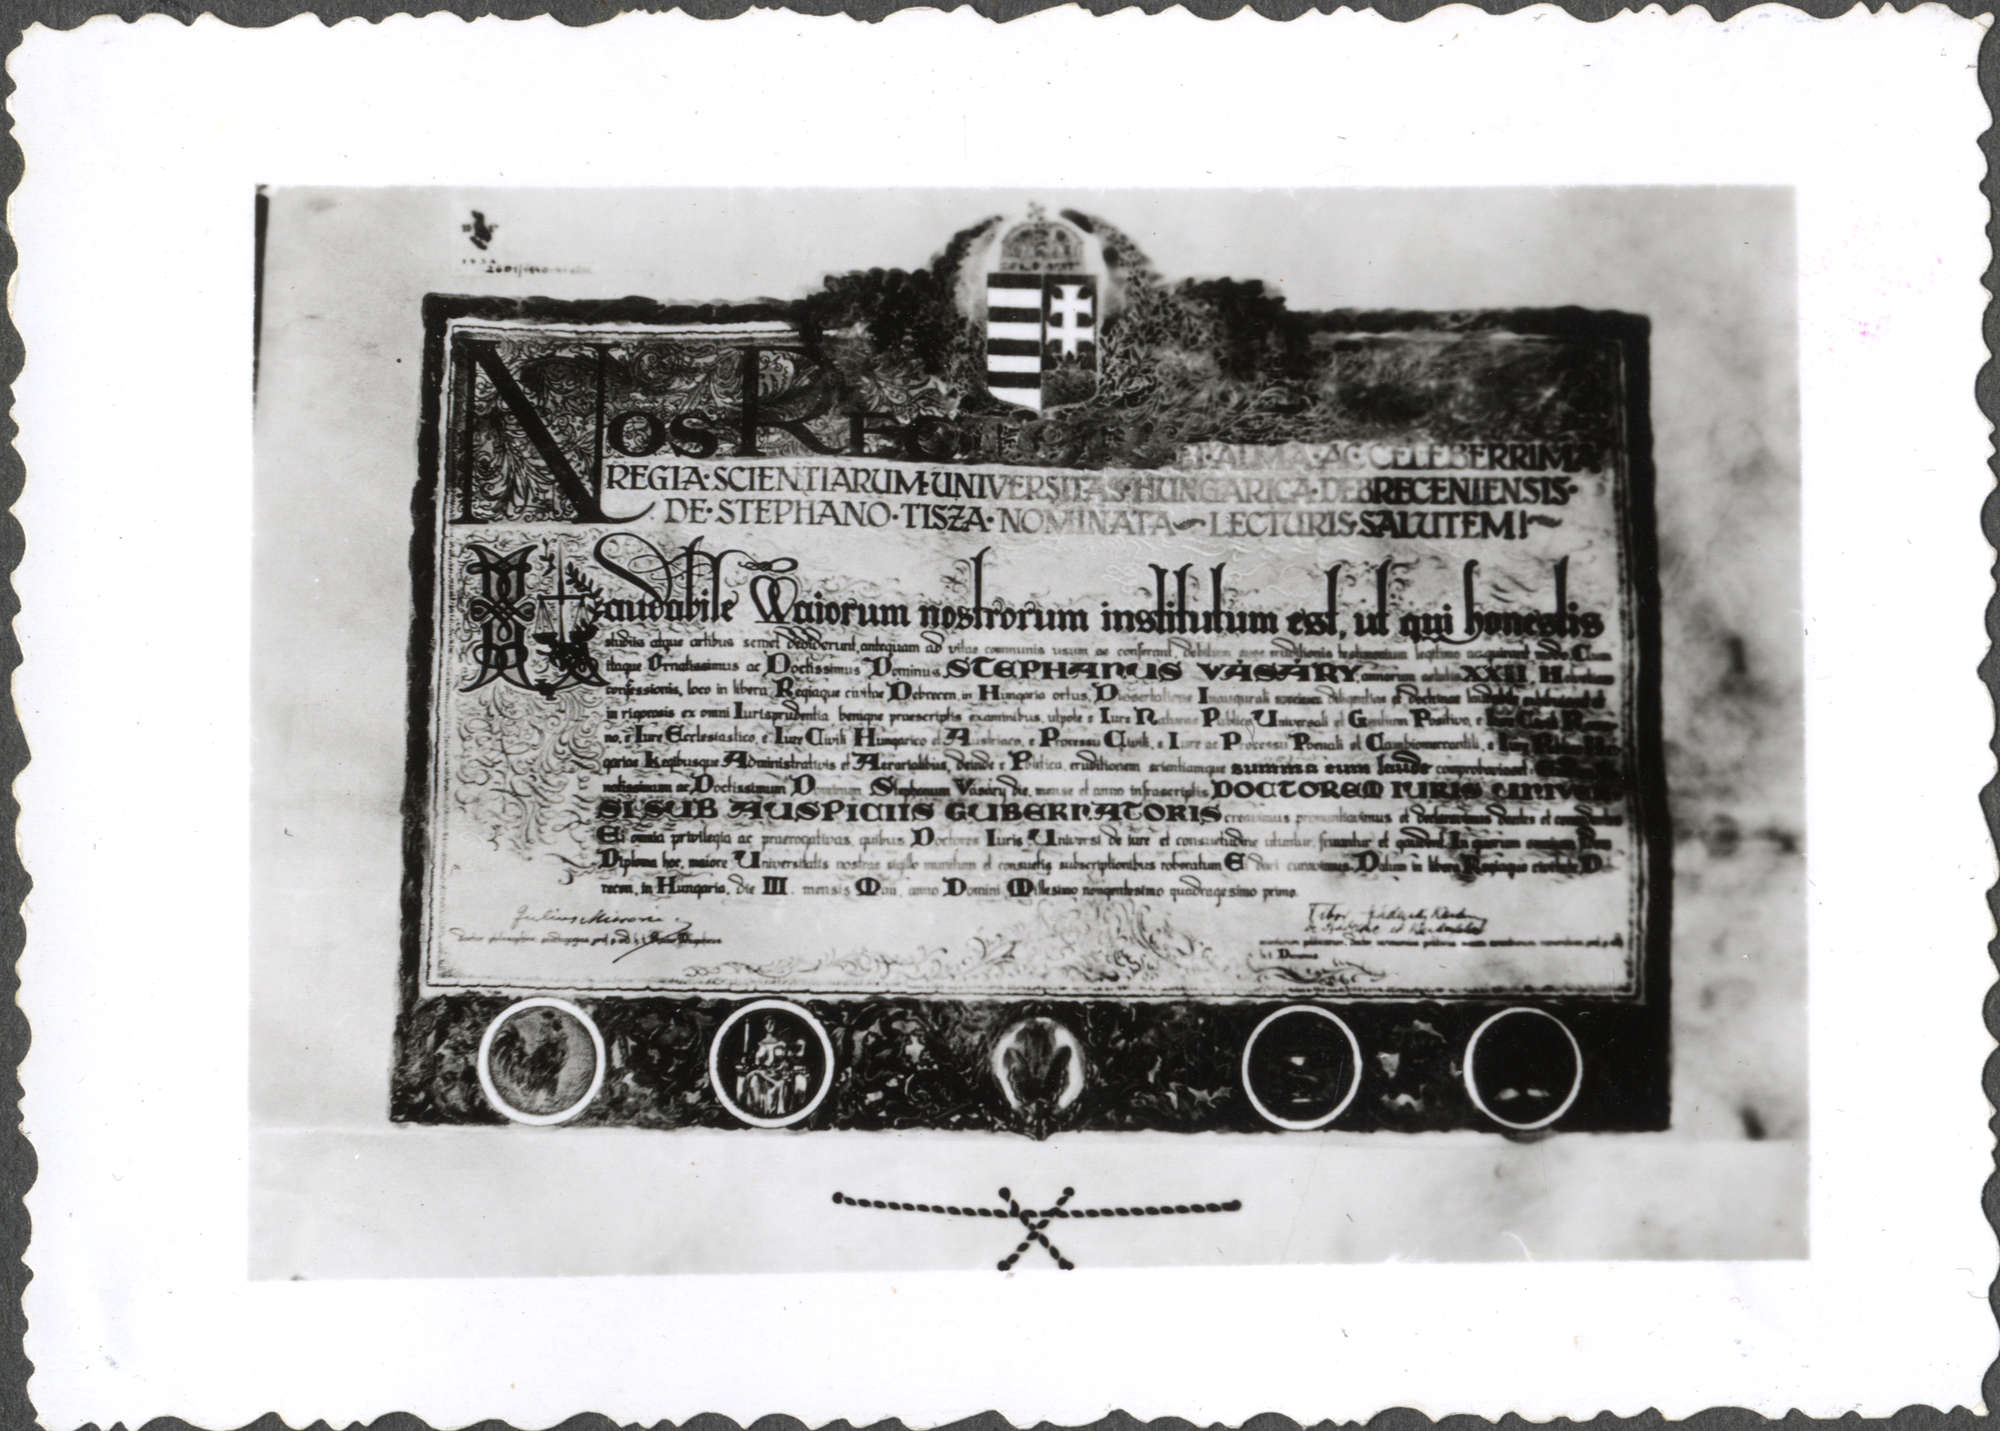 NOS RECTOR ET ALMA·AC CELEBERRIMA
REGIA·SCIENTIARUM·UNIVERSITAS·HUNGARICA·DEBRECENIENSIS·
DE·STEPHANO·TISZA·NOMINATA LECTURIS·SALUTEM!
Laudabile Maiorum nostrorum institutum est, ut qui honestis
studiis atque artibus semet dediderunt, antequam ad vitae communis usum se conferant, debitum suae eruditionis testimonium legitime acquirant modo Cum
itaque Ornatissimus ac Doctissimus Dominus STEPHANUS VÁSÁRY, annorum aetatis XXII, Helveticae
confessionis, loco in libera Regiaque civitate Debrecen, in Hungaria ortus, Dissertatione Inaugurali specimen diligentiae et doctrinae
in rigorosis ex omni Iurisprudentia benigne praescriptis examinibus, utpote e Iure Naturae Publico Universali et Gentium Positivo, e Iure Civili Roma-
no, e Iure Ecclesiastico, e Iure Civili Hungarico et Austriaco, e Processu Civili, e Iure ac Processu Poenali et Cambiomercantili, e Iure Publico Hun-
gariae Legibusque Administrativis et Aerarialibus, deinde e Politica, eruditionem scientiamque summa cum laude comprobavisset
natissimum ac Doctissimum Dominum Stephanum Vásáry die, mense et anno infrascriptis DOCTOREM IURIS UNIVER-
SI SUB AUSPICIIS GUBERNATORIS creavimus pronuntiavimus et declaravimus dantes et concedentes
Ei omnia privilegia ac praerogativas, quibus Doctores Iuris Universi de iure et consuetudine utuntur, fruuntur et gaudent. In quorum omnium fidem
Diploma hoc, maiore Universitatis nostrae sigillo munitum et consuetis subscriptionibus roboratum Ei dari curavimus. Datum in libera Regiaque civitate Deb-
recen, in Hungaria, die III. mensis Maii, anno Domini Millesimo nongentesimo quadragesimo primo.
Julius Tibor
h.t. Decanus